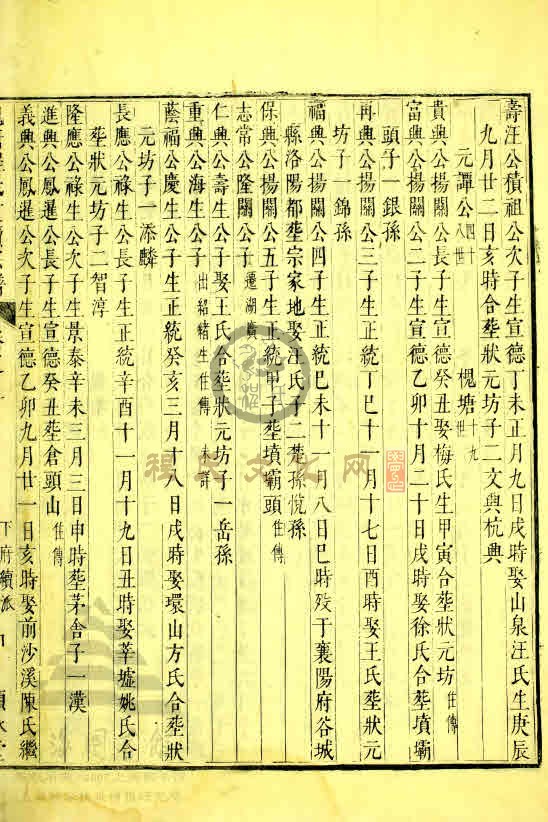 壽汪公積祖公次子生宣德丁未正月九日戌時娶山泉汪氏生庚辰
九月廿二日亥時合塟狀元坊子二文興杭興
元譚公四十八世 槐塘十九世
貴興公揚關公長子生宣德癸丑娶梅氏生甲寅合塟狀元坊仕傳
富興公揚關公二子生宣德乙卯十月二十日戌時娶徐氏合塟墳壩
頭子一銀孫
再興公揚關公三子生正統丁巳十一月十七日酉時娶王氏塟狀元
坊子一錦孫
福興公揚關公四子生正統己未十一月八日巳時殁于襄陽府谷城
縣洛陽都塟宗家地娶汪氏子二楚孫悅孫
保興公揚關公五子生正統甲子塟墳壩頭仕傳
志常公隆關公子遷湖廣
仁興公壽生公子娶王氏合塟狀元坊子一岳孫
重興公海生公子出紹緒生仕傳 未詳
蔭福公慶生公子生正統癸亥三月十八日戌時娶環山方氏合塟狀
元坊子一添麟
長應公祿生公長子生正統辛酉十一月十九日丑時娶莘墟姚氏合
塟狀元坊子二智淳
隆應公祿生公次子生景泰辛未三月三日申時塟茅舎子一漢
進興公鳳暹公長子生宣德癸丑塟倉頭山仕傳
義興公鳳暹公次子生宣德乙卯九月廿一日亥時娶前沙溪陳氏繼
下府續派
程氏文化网